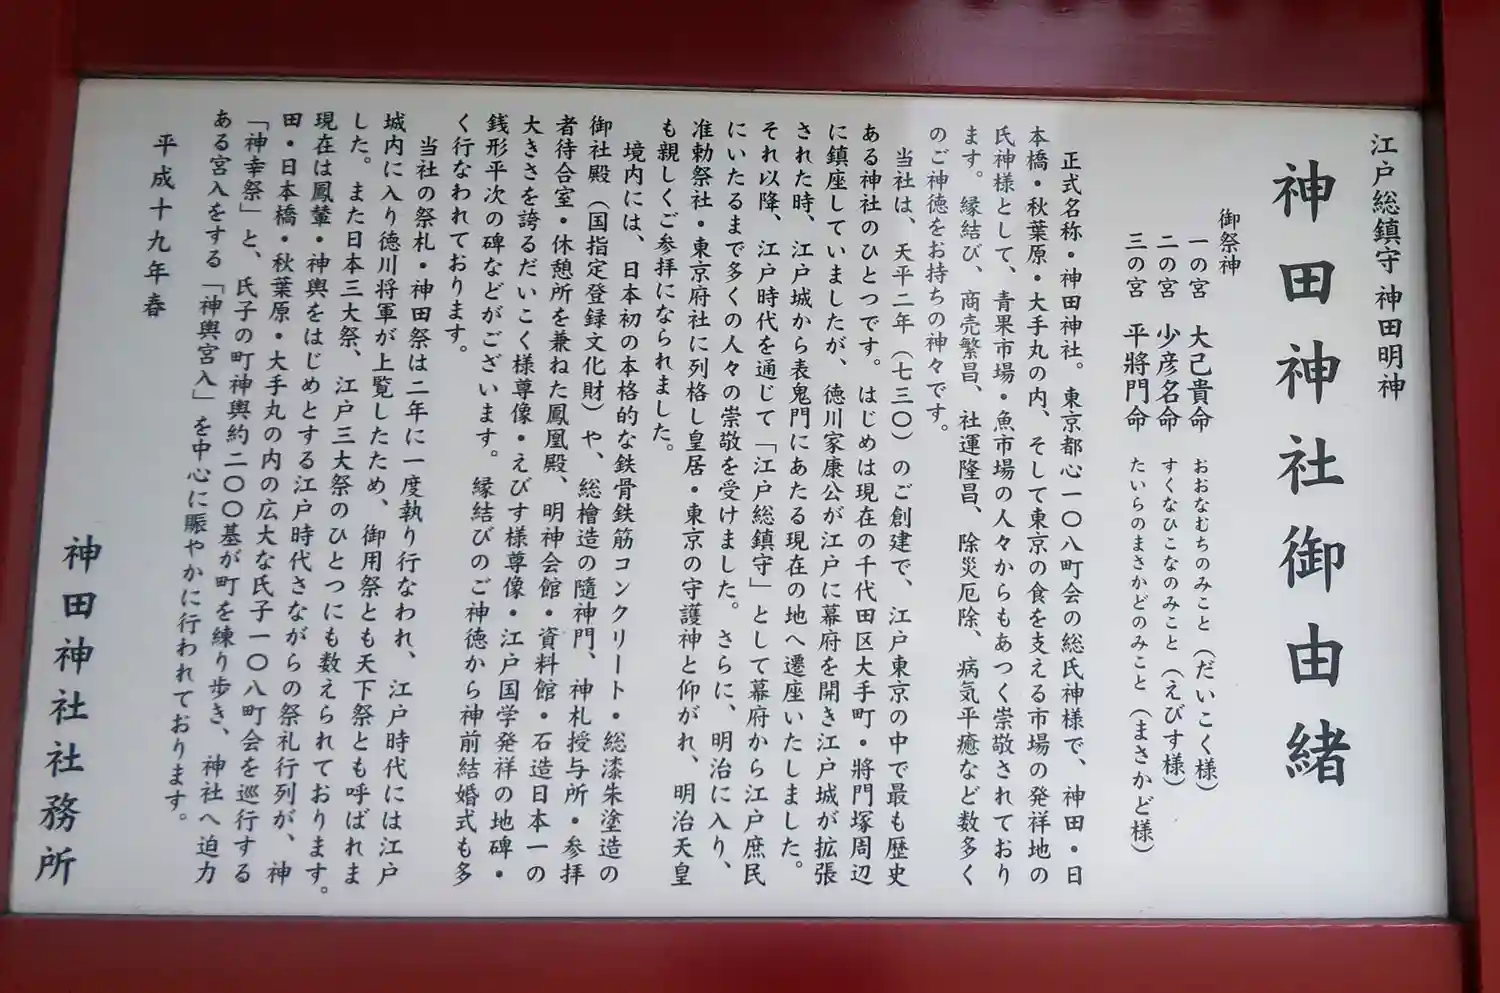 江戸総鎮守 神田明神
神田神社御由緒
御祭神
一の宮 大己貴命 おおなむちのみこと（だいこく様）
二の宮 少彦名命 すくなひこなのみこと（えびす様）
三の宮 平將門命 たいらのまさかどのみこと（まさかど様）
正式名称・神田神社。東京都心一〇八町会の総氏神様で、神田・日
本橋・秋葉原・大手丸の内、そして東京の食を支える市場の発祥地の
氏神様として、青果市場・魚市場の人々からもあつく崇敬されており
ます。縁結び、商売繁昌、社運隆昌、除災厄除、病気平癒など数多く
のご神徳をお持ちの神々です。
当社は、天平二年（七三〇）のご創建で、江戸東京の中で最も歴史
ある神社のひとつです。はじめは現在の千代田区大手町・將門塚周辺
に鎮座していましたが、徳川家康公が江戸に幕府を開き江戸城が拡張
された時、江戸城から表鬼門にあたる現在の地へ遷座いたしました。
それ以降、江戸時代を通じて「江戸総鎮守」として幕府から江戸庶民
にいたるまで多くの人々の崇敬を受けました。さらに、明治に入り、
准勅祭社・東京府社に列格し皇居・東京の守護神と仰がれ、明治天皇
も親しくご参拝になられました。
境内には、日本初の本格的な鉄骨鉄筋コンクリート・総漆朱塗造の
御社殿（国指定登録文化財）や、総檜造の隨神門、神札授与所・参拝
者待合室・休憩所を兼ねた鳳凰殿、明神会館・資料館・石造日本一の
大きさを誇るだいこく様尊像・えびす様尊像・江戸国学発祥の地碑・
銭形平次の碑などがございます。縁結びのご神徳から神前結婚式も多
く行なわれております。
当社の祭札・神田祭は二年に一度執り行なわれ、江戸時代には江戸
城内に入り徳川将軍が上覧したため、御用祭とも天下祭とも呼ばれま
した。また日本三大祭、江戸三大祭のひとつにも数えられております。
現在は鳳輦・神輿をはじめとする江戸時代さながらの祭礼行列が、神
田・日本橋・秋葉原・大手丸の内の広大な氏子一〇八町会を巡行する
「神幸祭」と、氏子の町神輿約二〇〇基が町を練り歩き、神社へ迫力
ある宮入をする「神輿宮入」を中心に賑やかに行われております。
平成十九年春
神田神社社務所